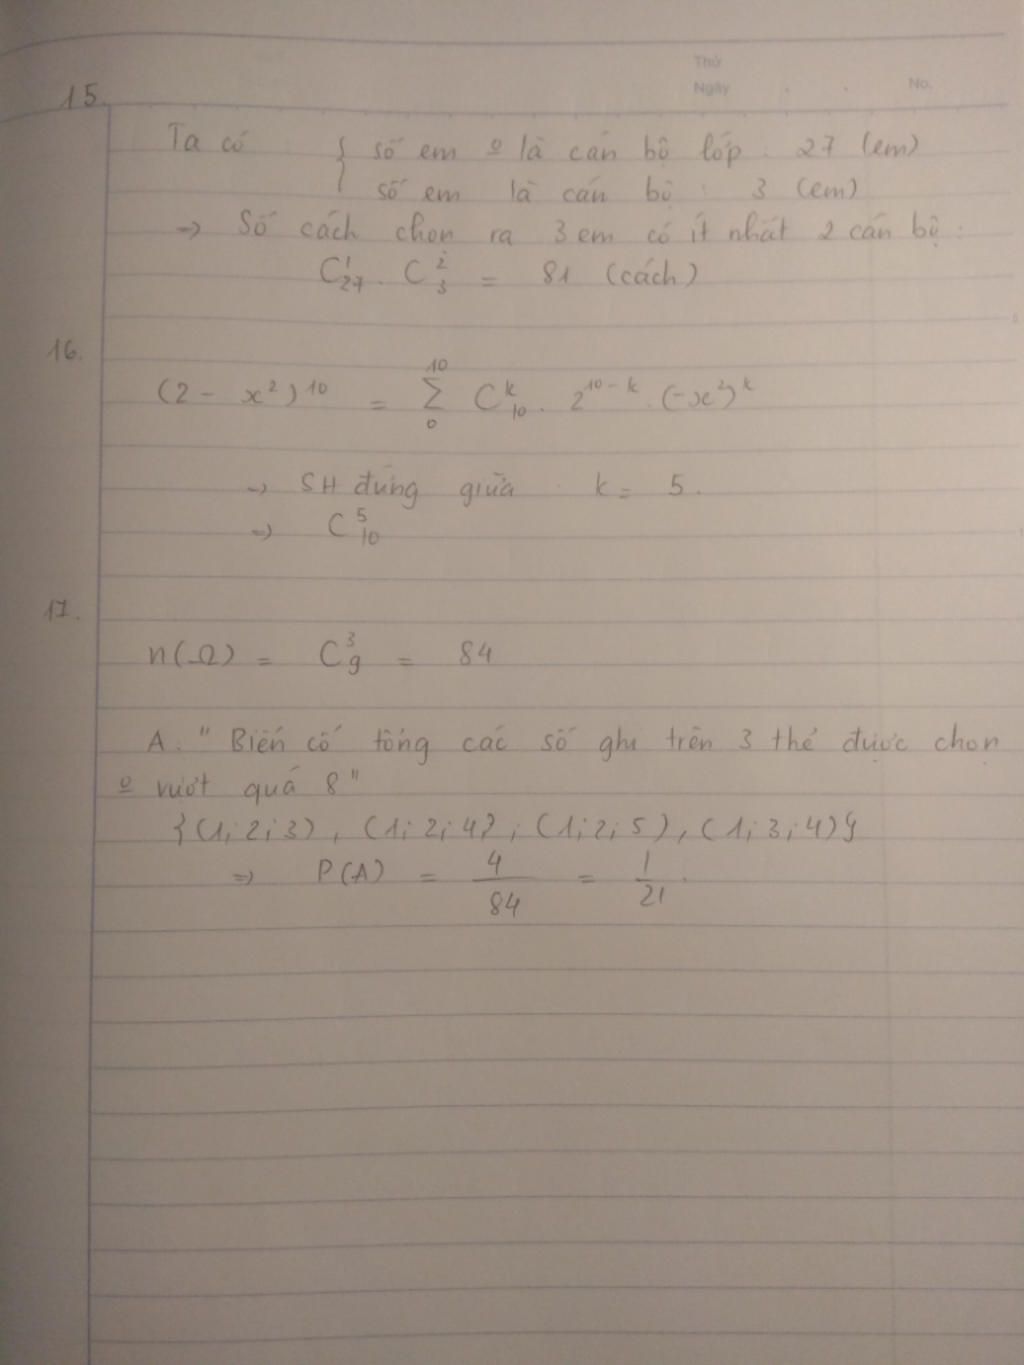 Thứ
Ngày No.
15.
Ta có { số em o là cán bộ lớp : 27 (em)
số em là cán bộ : 3 (em)
=> Số cách chọn ra 3 em có ít nhất 2 cán bộ :
C¹₂₇ . C²₃ = 81 (cách)
16.
(2 - x²)¹⁰ = ¹⁰Σ₀ Cᵏ₁₀ . 2¹⁰⁻ᵏ . (-x²)ᵏ
=> SH đứng giữa : k = 5.
=> C⁵₁₀
17.
n(Ω) = C³₉ = 84
A : " Biến cố tổng các số ghi trên 3 thẻ được chọn
o vượt quá 8 "
{(1; 2; 3), (1; 2; 4), (1; 2; 5), (1; 3; 4)}
=> P(A) = 4/84 = 1/21 .